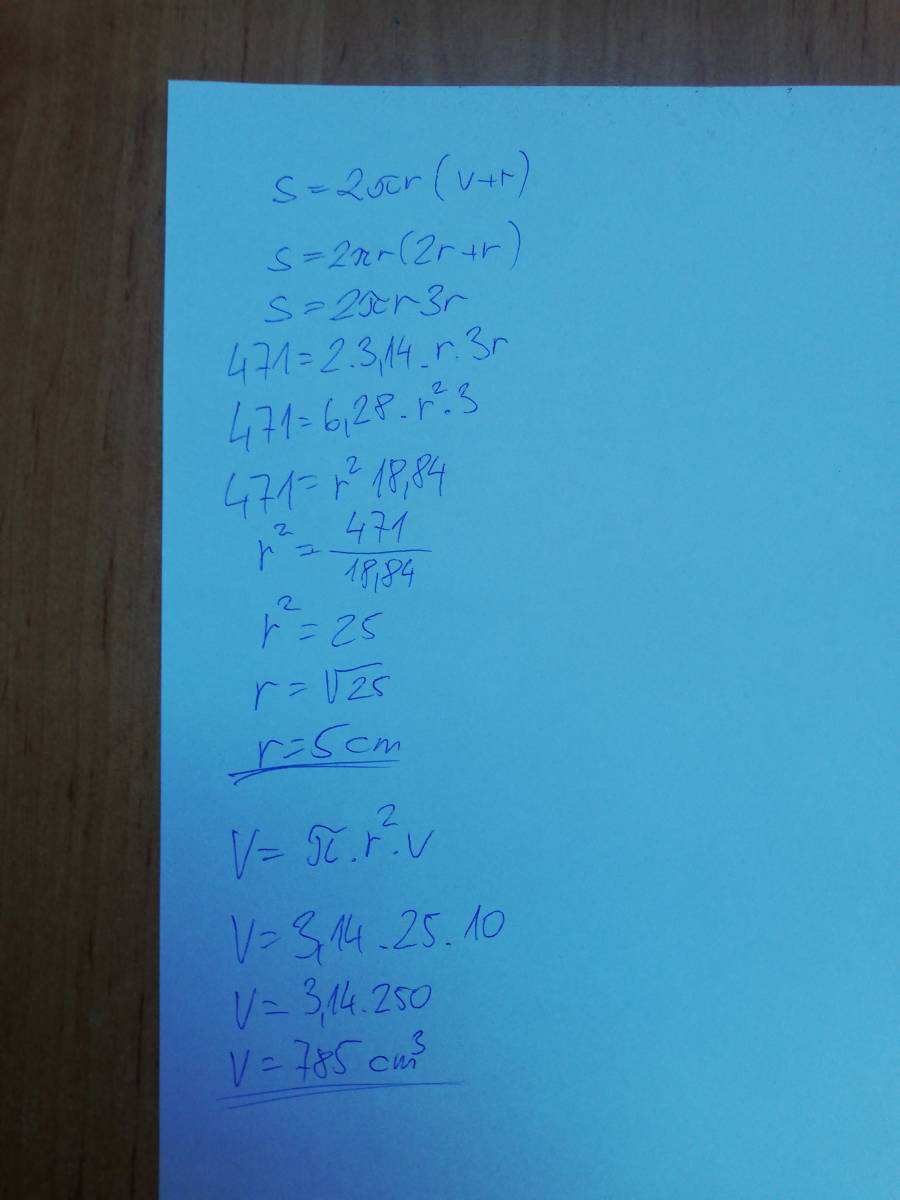 S=2πr(v+r)
S=2πr(2r+r)
S=2πr3r
471=2.3,14.r.3r
471=6,28.r².3
471=r² 18,84
r²=471/18,84
r²=25
r=√25
r=5cm
V=π.r².v
V=3,14.25.10
V=3,14.250
V=785 cm³